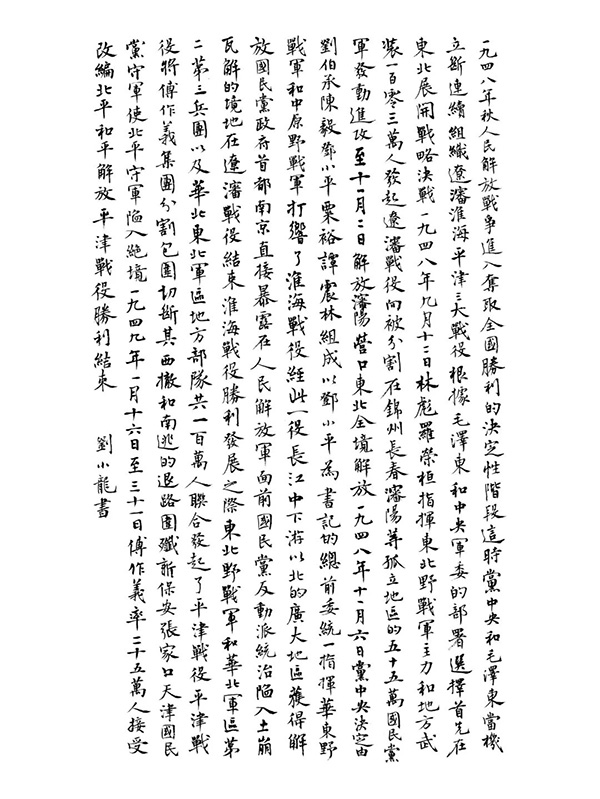 一九四八年秋人民解放戰爭進入奪取全國勝利的決定性階段這時黨中央和毛澤東當機
立斷連續組織遼瀋淮海平津三大戰役根據毛澤東和中央軍委的部署選擇首先在
東北展開戰略決戰一九四八年九月十二日林彪羅榮桓指揮東北野戰軍主力和地方武
裝一百零三萬人發起遼瀋戰役向被分割在錦州長春瀋陽等孤立地區的五十五萬國民黨
軍發動進攻至十一月二日解放瀋陽營口東北全境解放一九四八年十一月六日黨中央決定由
劉伯承陳毅鄧小平粟裕譚震林組成以鄧小平為書記的總前委統一指揮華東野
戰軍和中原野戰軍打響了淮海戰役經此一役長江中下游以北的廣大地區獲得解
放國民黨政府首都南京直接暴露在人民解放軍面前國民黨反動派統治陷入土崩
瓦解的境地在遼瀋戰役結束淮海戰役勝利發展之際東北野戰軍和華北軍區第
二第三兵團以及華北東北軍區地方部隊共一百萬人聯合發起了平津戰役平津戰
役將傅作義集團分割包圍切斷其西撤和南逃的退路圍殲新保安張家口天津國民
黨守軍使北平守軍陷入絕境一九四九年一月十六日至三十一日傅作義率二十五萬人接受
改編北平和平解放平津戰役勝利結束 劉小龍書